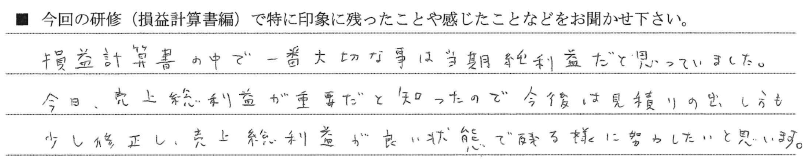 ■ 今回の研修（損益計算書編）で特に印象に残ったことや感じたことなどをお聞かせ下さい。
損益計算書の中で一番大切な事は当期純利益だと思っていました。
今日、売上総利益が重要だと知ったので今後は見積りの出し方も
少し修正し、売上総利益が良い状態で残る様に努力したいと思います。